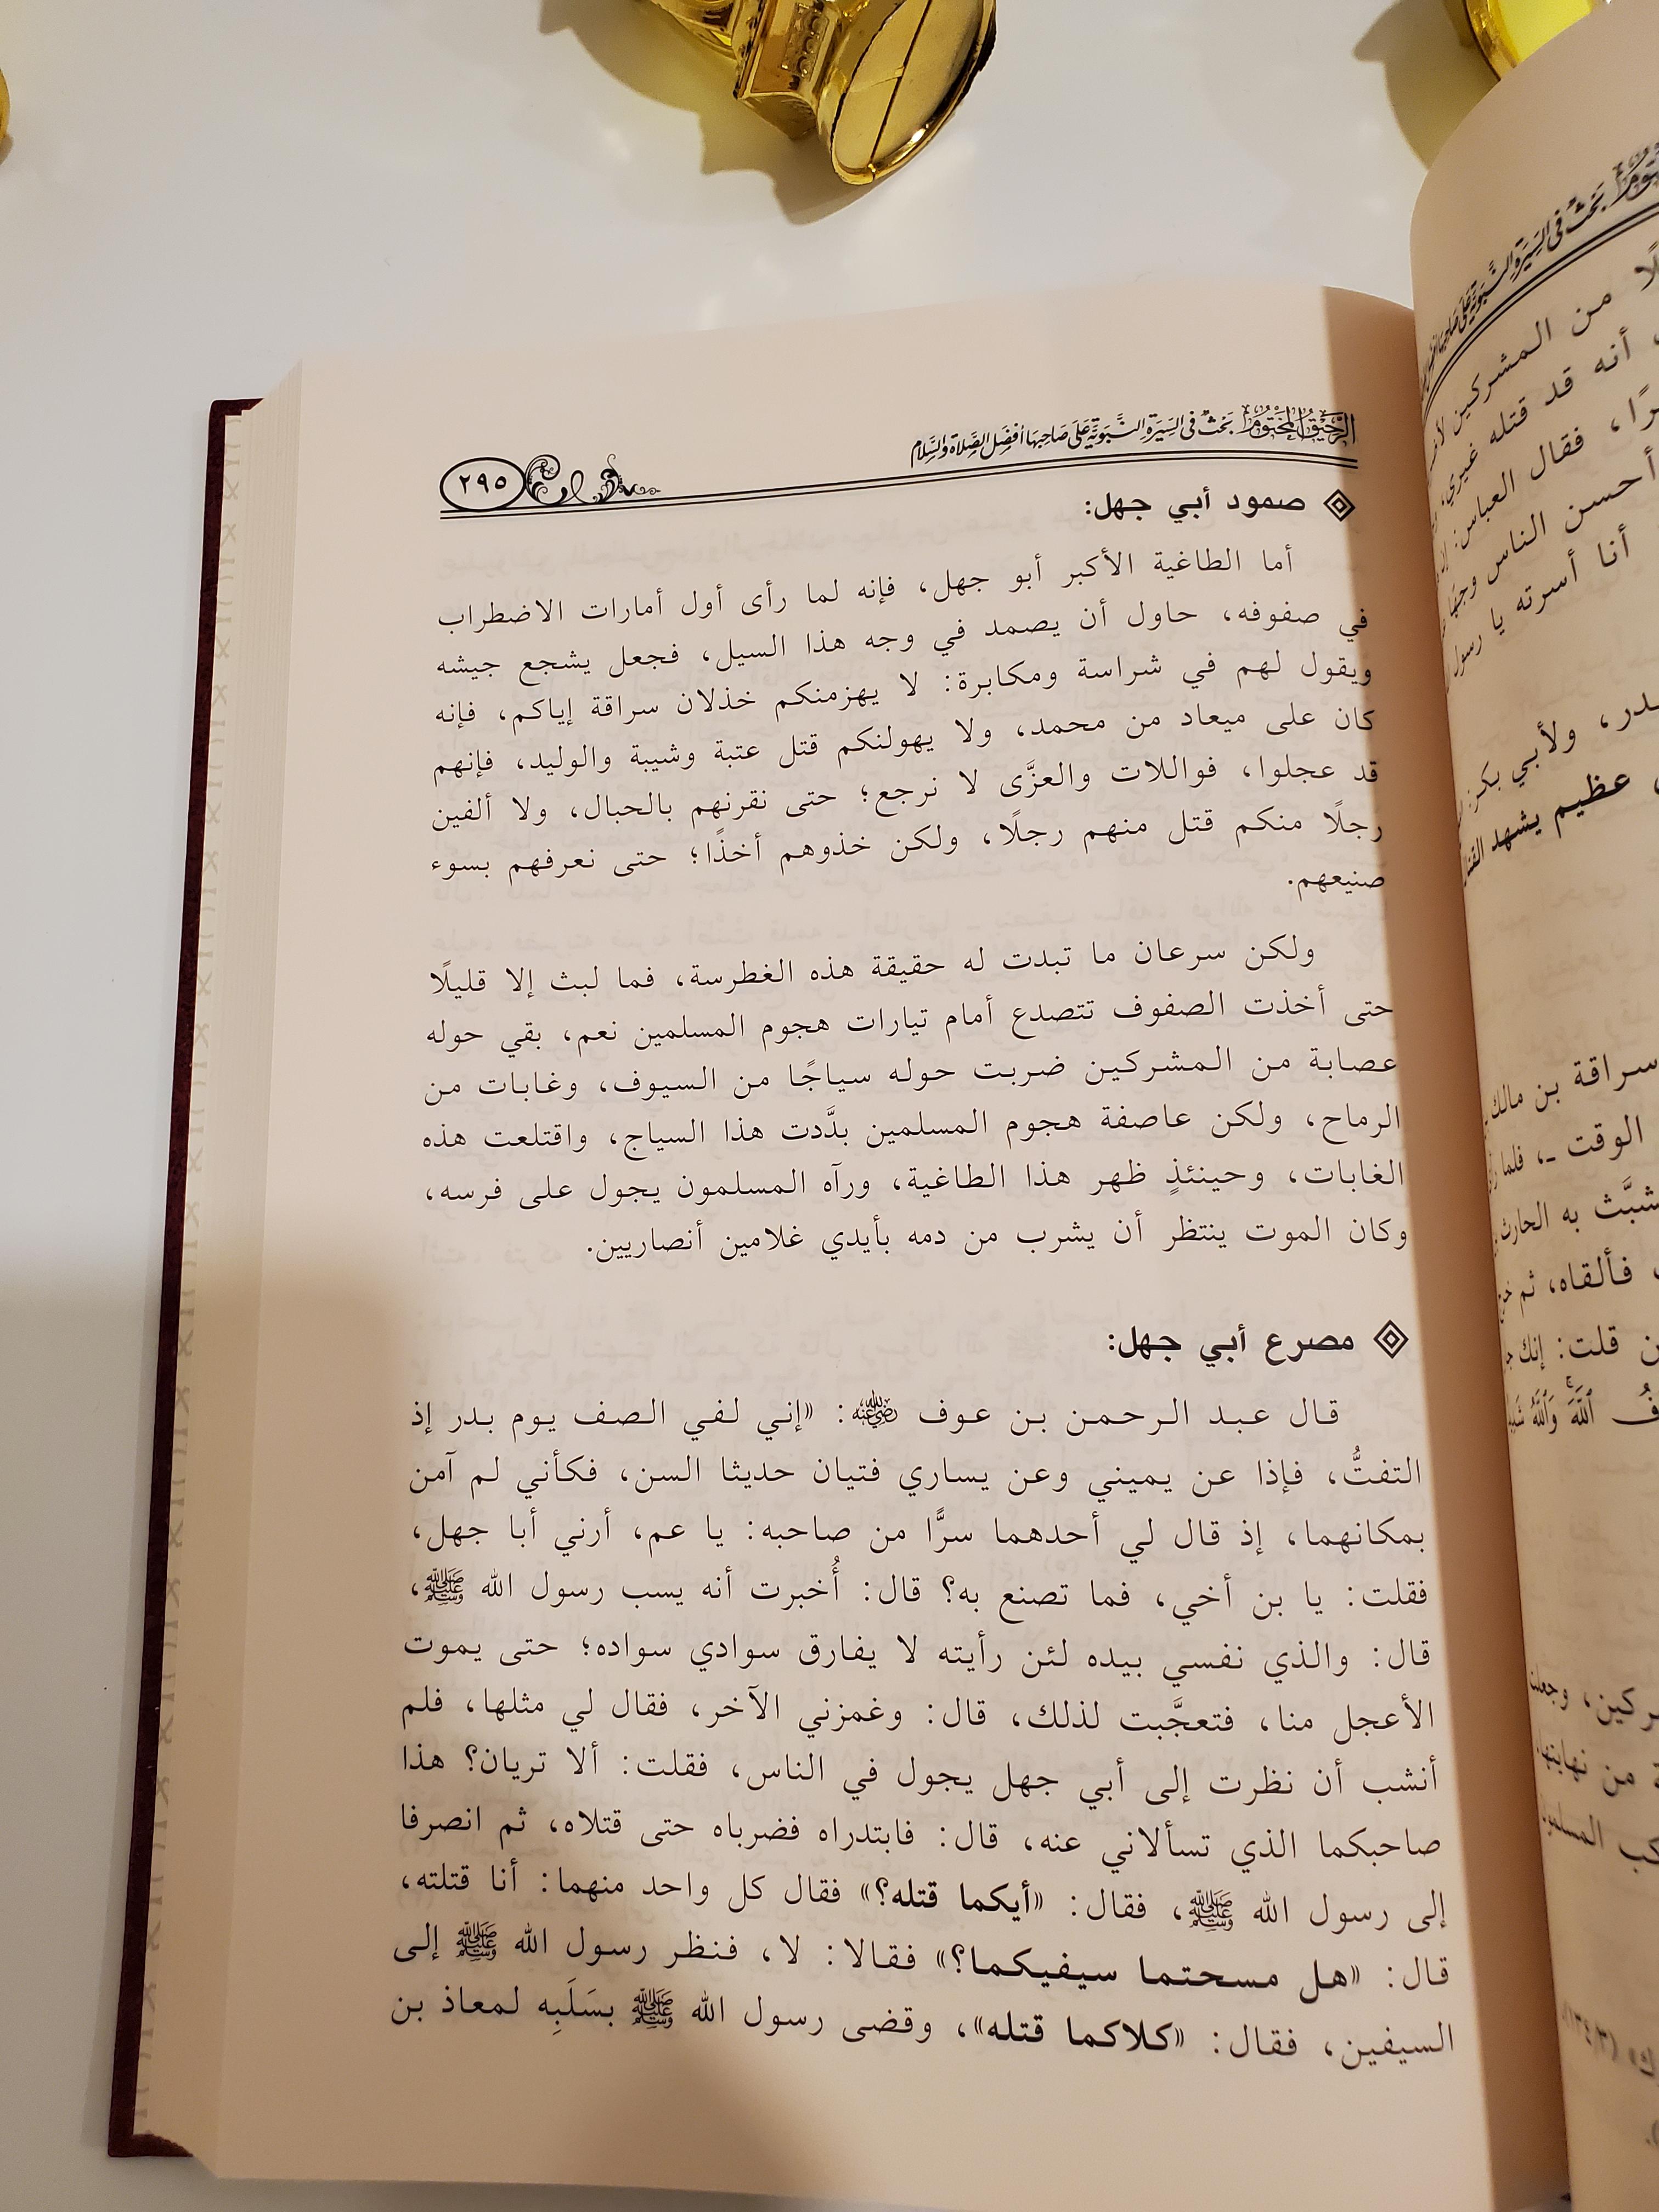 الرحيق المختوم بَحْثٌ في السِّيرَةِ النَّبَوِيَّةِ عَلَى صَاحِبِهَا أَفْضَل الصَّلَاة وَالسَّلَام
٢٩٥
صمود أبي جهل:
أما الطاغية الأكبر أبو جهل، فإنه لما رأى أول أمارات الاضطراب
في صفوفه، حاول أن يصمد في وجه هذا السيل، فجعل يشجع جيشه
ويقول لهم في شراسة ومكابرة: لا يهزمنكم خذلان سراقة إياكم، فإنه
كان على ميعاد من محمد، ولا يهولنكم قتل عتبة وشيبة والوليد، فإنهم
قد عجلوا، فواللات والعزَّى لا نرجع؛ حتى نقرنهم بالحبال، ولا ألفين
رجلًا منكم قتل منهم رجلًا، ولكن خذوهم أخذًا؛ حتى نعرفهم بسوء
صنيعهم.
ولكن سرعان ما تبدت له حقيقة هذه الغطرسة، فما لبث إلا قليلًا
حتى أخذت الصفوف تتصدع أمام تيارات هجوم المسلمين نعم، بقي حوله
عصابة من المشركين ضربت حوله سياجًا من السيوف، وغابات من
الرماح، ولكن عاصفة هجوم المسلمين بدَّدت هذا السياج، واقتلعت هذه
الغابات، وحينئذٍ ظهر هذا الطاغية، ورآه المسلمون يجول على فرسه،
وكان الموت ينتظر أن يشرب من دمه بأيدي غلامين أنصاريين.
مصرع أبي جهل:
قال عبد الرحمن بن عوف رضي الله عنه: «إني لفي الصف يوم بدر إذ
التفتُّ، فإذا عن يميني وعن يساري فتيان حديثا السن، فكأني لم آمن
بمكانهما، إذ قال لي أحدهما سرًّا من صاحبه: يا عم، أرني أبا جهل،
فقلت: يا بن أخي، فما تصنع به؟ قال: أُخبرت أنه يسب رسول الله ﷺ،
قال: والذي نفسي بيده لئن رأيته لا يفارق سوادي سواده؛ حتى يموت
الأعجل منا، فتعجَّبت لذلك، قال: وغمزني الآخر، فقال لي مثلها، فلم
أنشب أن نظرت إلى أبي جهل يجول في الناس، فقلت: ألا تريان؟ هذا
صاحبكما الذي تسألاني عنه، قال: فابتدراه فضرباه حتى قتلاه، ثم انصرفا
إلى رسول الله ﷺ، فقال: «أيكما قتله؟» فقال كل واحد منهما: أنا قتلته،
قال: «هل مسحتما سيفيكما؟» فقالا: لا، فنظر رسول الله ﷺ إلى
السيفين، فقال: «كلاكما قتله»، وقضى رسول الله ﷺ بسَلَبِه لمعاذ بن
من المشركين
أنه قد قتله غيري،
فقال العباس:
أحسن الناس وجهًا
أنا أسرته يا رسول
ولأبي بكر:
عظيم يشهد
سراقة بن مالك
الوقت ـ، فلما
به الحارث
فألقاه، ثم
قلت: إنك
ٱللَّهَ وَٱللَّهُ
وجعلت
من نهايتها
المسلمون